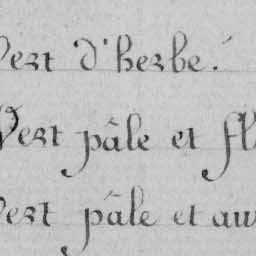 Vert d'herbe.
Vert pâle et fl
Vert pâle et au